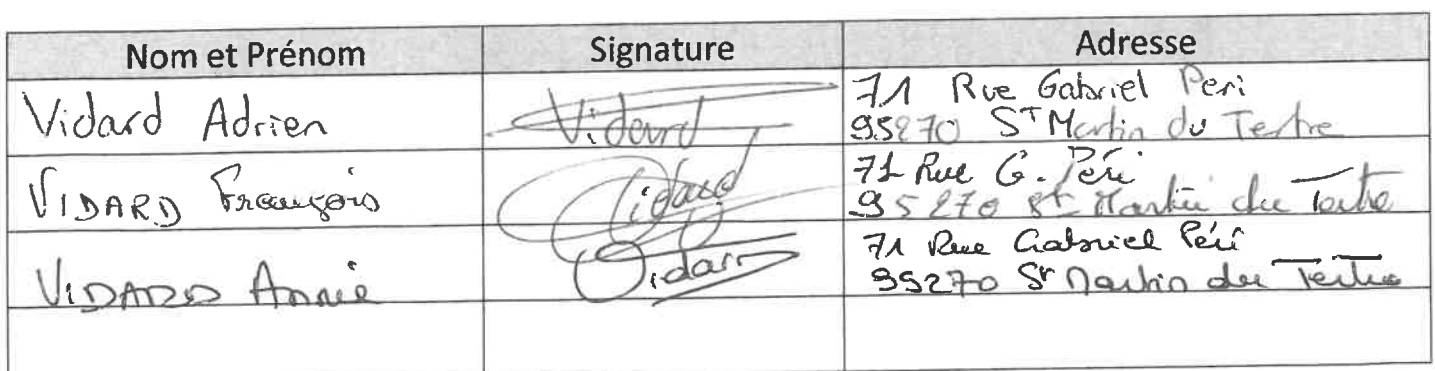 Nom et Prénom Signature Adresse
Vidard Adrien Vidard 71 Rue Gabriel Peri
95270 ST Martin du Tertre
VIDARD François Vidard 71 Rue G. Péri
95270 St Martin du Tertre
VIDARD Annie Vidard 71 Rue Gabriel Péri
95270 St Martin du Tertre